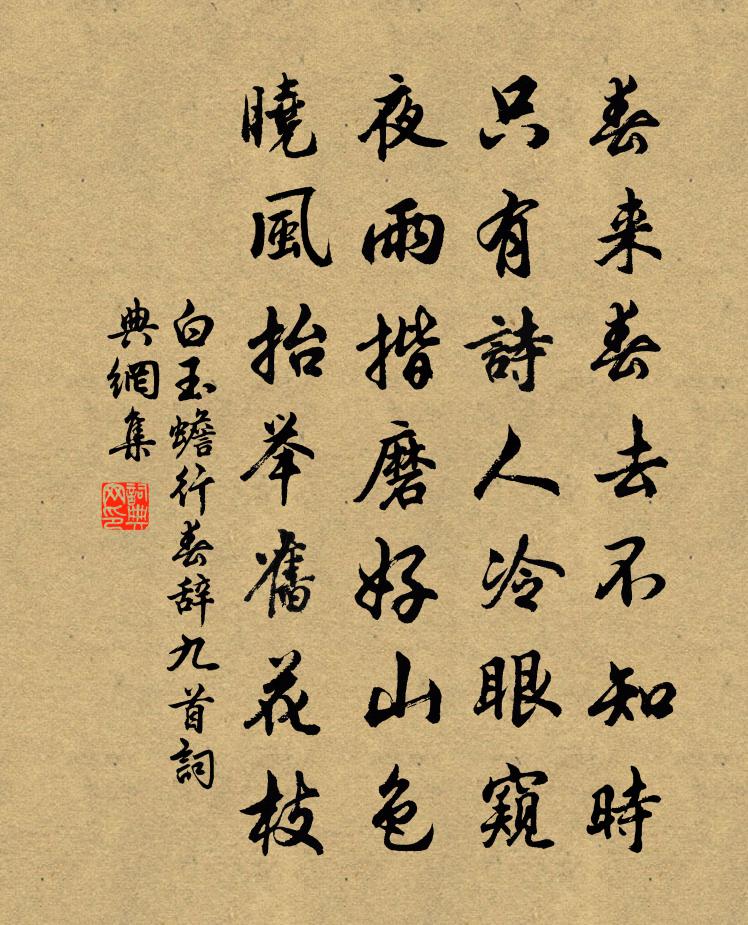 春来春去不知時
只有詩人冷眼窺
夜雨揩磨好山色
曉風抬举舊花枝
白玉蟾行春辞九首詞
典網集
詞典
网印